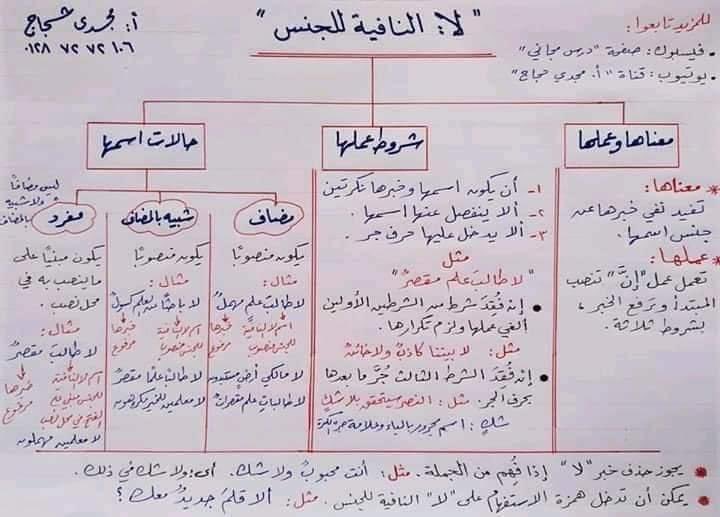 "لا: النافية للجنس"
أ: مجدي حجاج
٠١٢٨ ٧٢ ٧٢ ١٠٦
للمزيد تابعوا:
• فيسبوك: صفحة "درس مجاني"
• يوتيوب: قناة "أ. مجدي حجاج"
معناها وعملها
* معناها:
تفيد نفي خبرها عن
جنس اسمها.
* عملها:
تعمل عمل "إنَّ" تنصب
المبتدأ وترفع الخبر،
بشروط ثلاثة.
شروط عملها
١- أن يكون اسمها وخبرها نكرتين
٢- ألا ينفصل عنها اسمها.
٣- ألا يدخل عليها حرف جر.
مثل
"لا طالبَ علم مقصرٌ"
• إن فُقدَ شرط من الشرطين الأولين
أُلغي عملها ولزم تكرارها.
مثل: لا بيننا كاذبٌ ولا خائنٌ
• إن فُقدَ الشرط الثالث جُرَّ ما بعدها
بحرف الجر. مثل: النصر سيتحقق بلا شكٍ
شكٍ: اسم مجرور بالباء وعلامة جره الكسرة
حالات اسمها
مضاف
يكون منصوبًا
مثال:
لا طالبَ علم مهملٌ
اسم لا النافية للجنس منصوب
خبرها مرفوع
لا مالكي أرضٍ
لا طالباتِ علم مقصراتٌ
شبيه بالمضاف
يكون منصوبًا
مثال:
لا باحثًا عن العلم كسولٌ
اسم لا النافية للجنس منصوب
خبرها مرفوع
لا طالبًا علمًا مقصرٌ
لا معلمين للخير مكروهون
ليس مضافًا
ولا شبيه
بالمضاف
مفرد
يكون مبنيًا على
ما ينصب به في
محل نصب.
مثال:
لا طالبَ مقصرٌ
اسم لا النافية للجنس مبني على الفتح في محل نصب
خبرها مرفوع
لا معلمين مهملون
* يجوز حذف خبر "لا" إذا فُهم من الجملة. مثل: أنت محبوبٌ ولا شك. أي: ولا شك في ذلك.
* يمكن أن تدخل همزة الاستفهام على "لا" النافية للجنس. مثل: ألا قلمَ جديدٌ معك؟